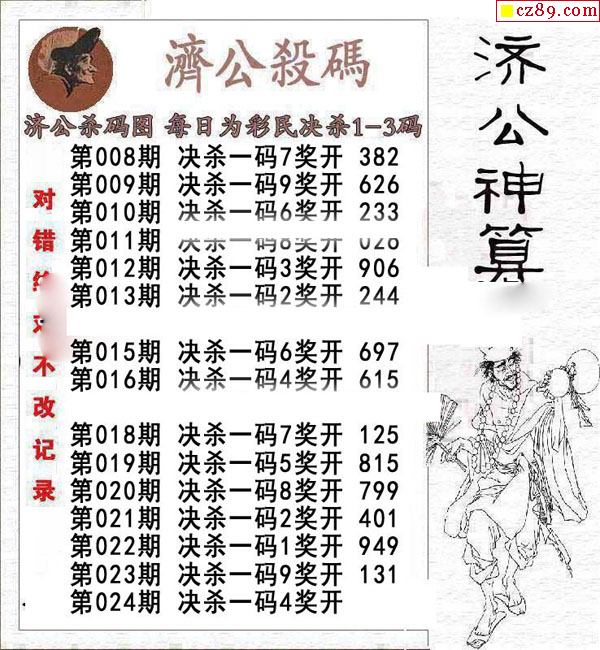 cz89.com
濟公殺碼
济公杀码图 每日为彩民决杀1-3码
第008期 决杀一码7奖开 382
第009期 决杀一码9奖开 626
第010期 决杀一码6奖开 233
第011期 决杀一码8奖开 028
第012期 决杀一码3奖开 906
第013期 决杀一码2奖开 244
第015期 决杀一码6奖开 697
第016期 决杀一码4奖开 615
第018期 决杀一码7奖开 125
第019期 决杀一码5奖开 815
第020期 决杀一码8奖开 799
第021期 决杀一码2奖开 401
第022期 决杀一码1奖开 949
第023期 决杀一码9奖开 131
第024期 决杀一码4奖开
对错不改记录
济公神算